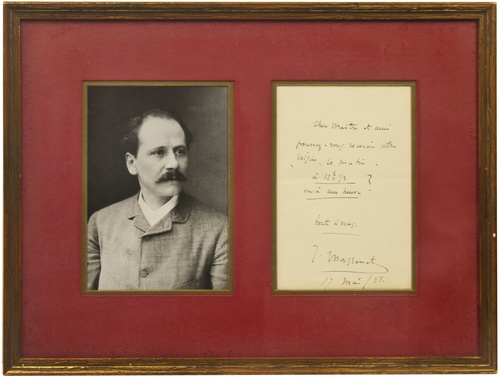 Cher Maître et ami
pouvez-vous recevoir votre
voisin, le matin
à 11h 1/2
ou à une heure ?
tout à vous,
J. Massenet
17 Mai /88.